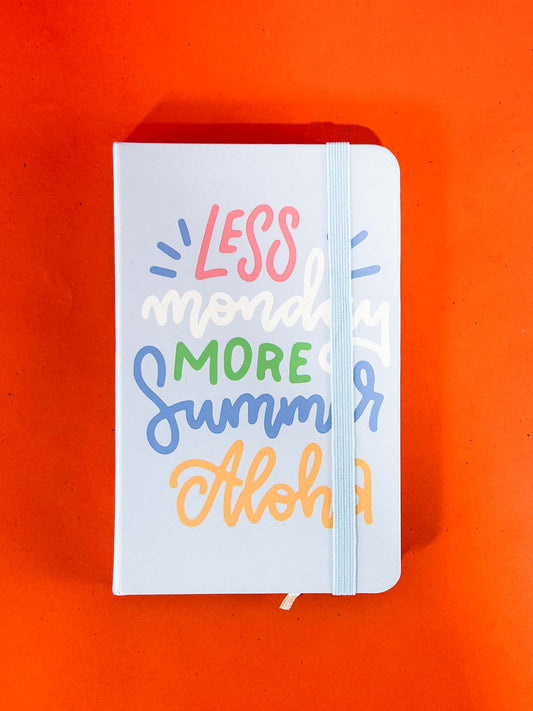 LESS
monday
MORE
Summer
Aloha